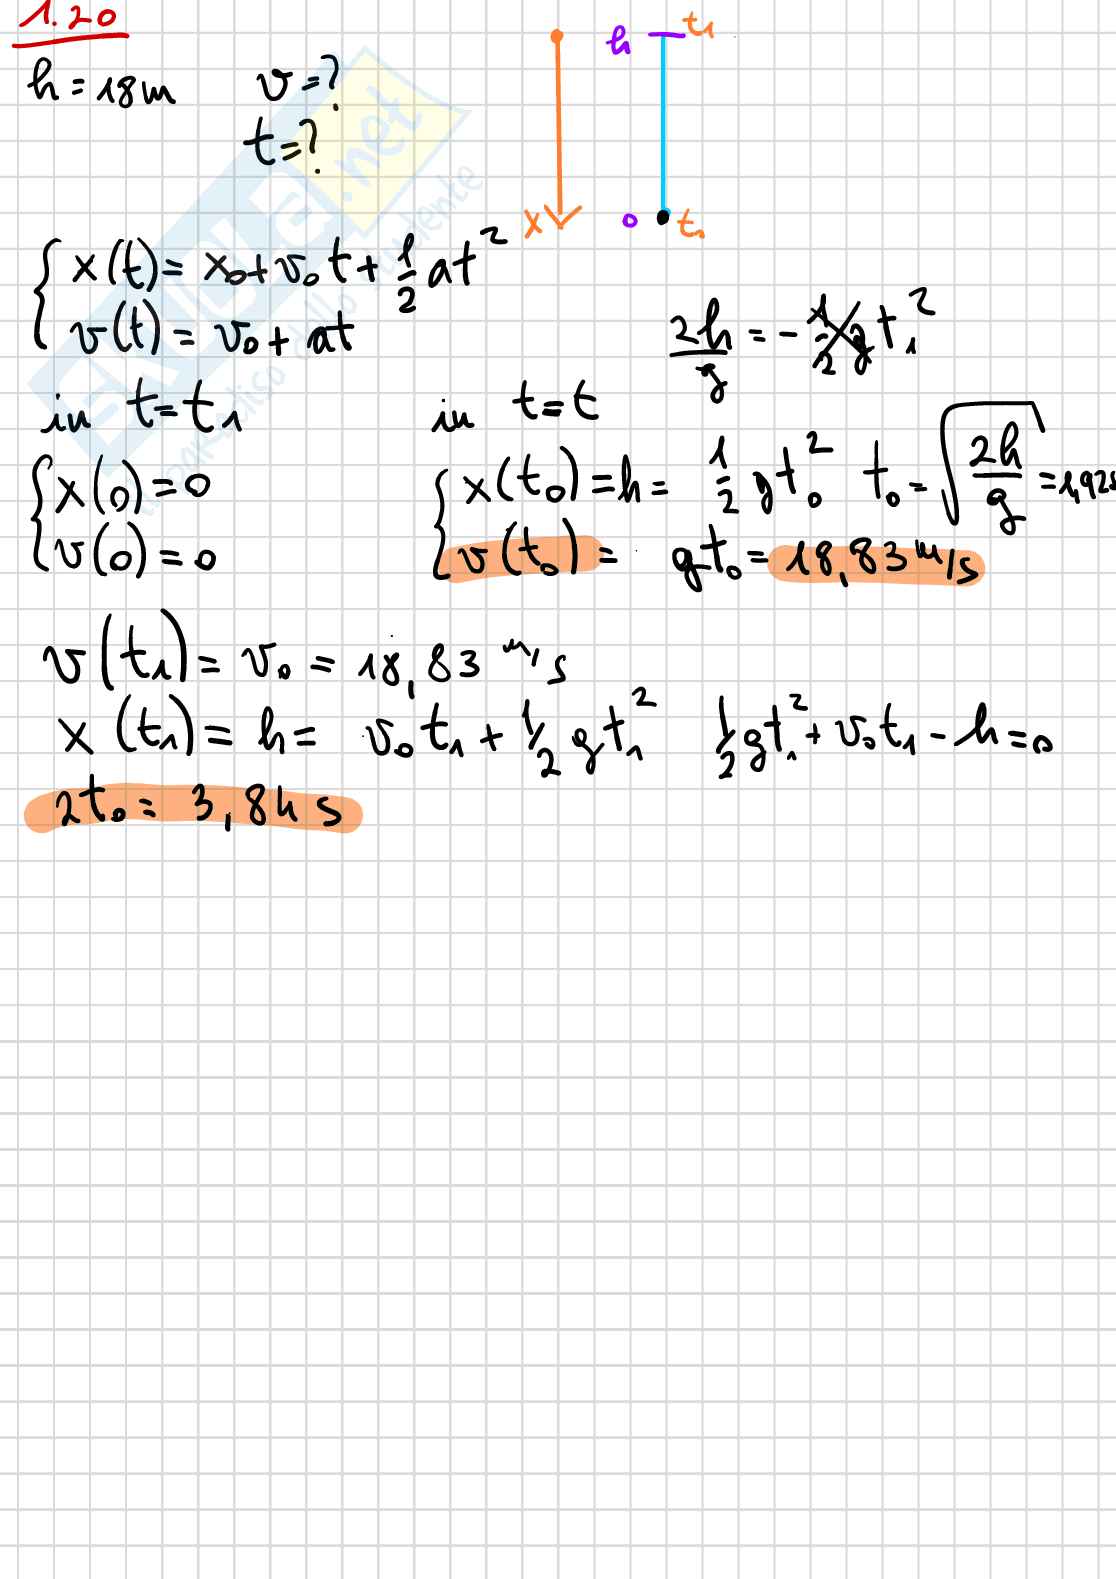 1.20
h = 18m v = ?
t = ?
h t₁
x 0 t₁
{ x(t) = x₀ + v₀t + 1/2 at²
v(t) = v₀ + at
2h/g = - 1/2 g t₁²
in t = t₁ in t = t
{ x(0) = 0 { x(t₀) = h = 1/2 gt₀² t₀ = √2h/g = 1,92s
v(0) = 0 v(t₀) = gt₀ = 18,83 m/s
v(t₁) = v₀ = 18,83 m/s
x(t₁) = h = v₀t₁ + 1/2 gt₁² 1/2 gt₁² + v₀t₁ - h = 0
2t₀ = 3,84 s
SKUOLA.net